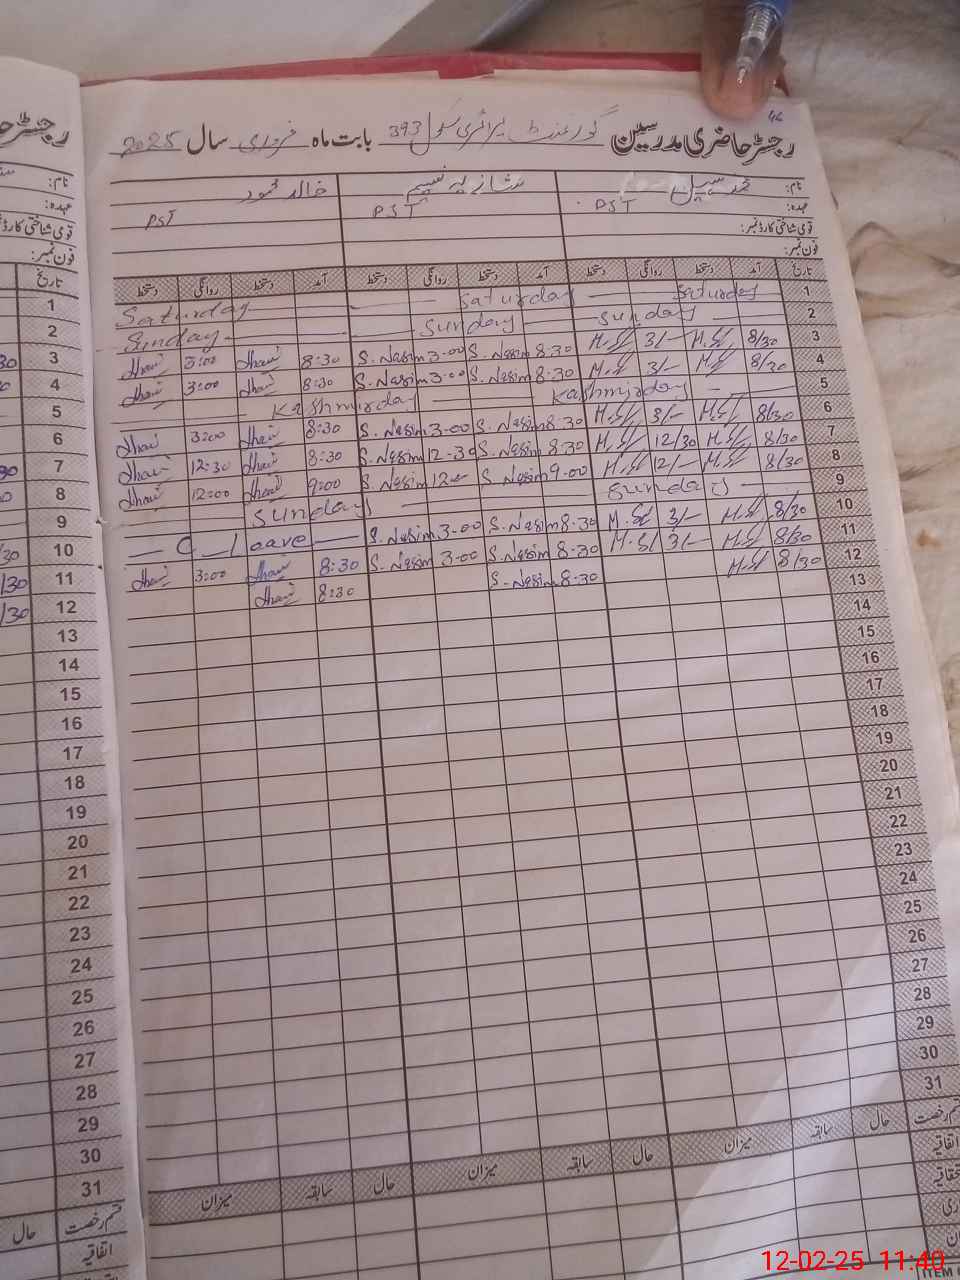 46
رجسٹر حاضری مدرسین گورنمنٹ پرائمری سکول 393 بابت ماہ فروری سال 2025
نام: محمد سہیل شازیہ نسیم خالد محمود
عہدہ: PST PST PST
قومی شناختی کارڈ نمبر:
فون نمبر:
تاریخ آمد دستخط روانگی دستخط آمد دستخط روانگی دستخط آمد دستخط روانگی دستخط
1 Saturday Saturday Saturday
2 Sunday Sunday Sunday
3 8/30 3/- S. Nasim 8:30 S. Nasim 3-00 8:30 3:00
4 8/30 3/- S. Nasim 8:30 S. Nasim 3-00 8:30 3:00
5 Kashmirday Kashmirday
6 8/30 3/- S. Nasim 8:30 S. Nasim 3-00 8:30 3:00
7 8/30 12/30 S. Nasim 8:30 S. Nasim 12-30 8:30 12:30
8 8/30 12/- S. Nasim 9-00 S. Nasim 12 9:00 12:00
9 Sunday Sunday
10 8/30 3/- S. Nasim 8:30 S. Nasim 3-00 C-Leave
11 8/30 3/- S. Nasim 8:30 S. Nasim 3-00 8:30 3:00
12 8/30 S. Nasim 8:30 8:30
13
14
15
16
17
18
19
20
21
22
23
24
25
26
27
28
29
30
31
قسم رخصت حال سابقہ میزان حال سابقہ میزان حال سابقہ میزان
اتفاقیہ
رجسٹر حا
نام:
عہدہ:
قومی شناختی کارڈ
فون نمبر:
تاریخ
1
2
3
4
5
6
7
8
9
10
11
12
13
14
15
16
17
18
19
20
21
22
23
24
25
26
27
28
29
30
31
قسم رخصت حال
اتفاقیہ
12-02-25 11:40